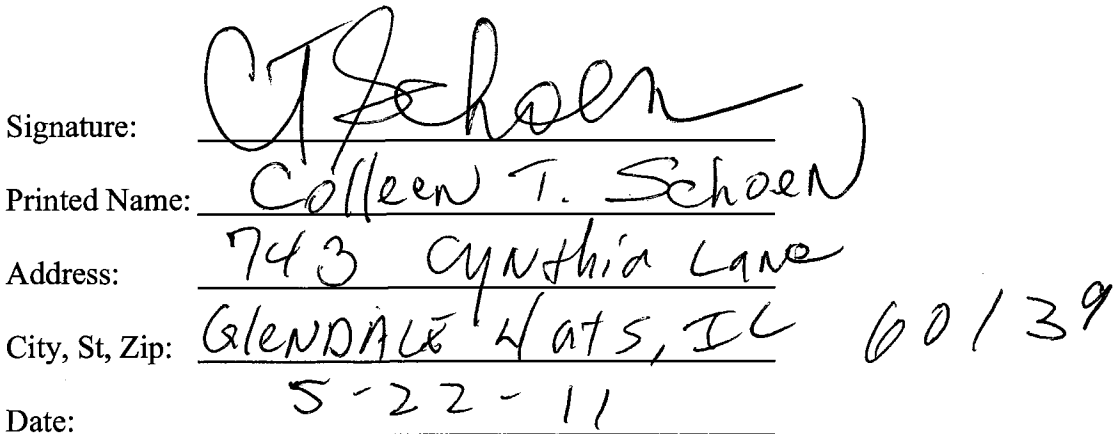 Signature: CTSchoen
Printed Name: Colleen T. Schoen
Address: 743 Cynthia Lane
City, St, Zip: GlenDALE Hgts, IL 60139
Date: 5-22-11